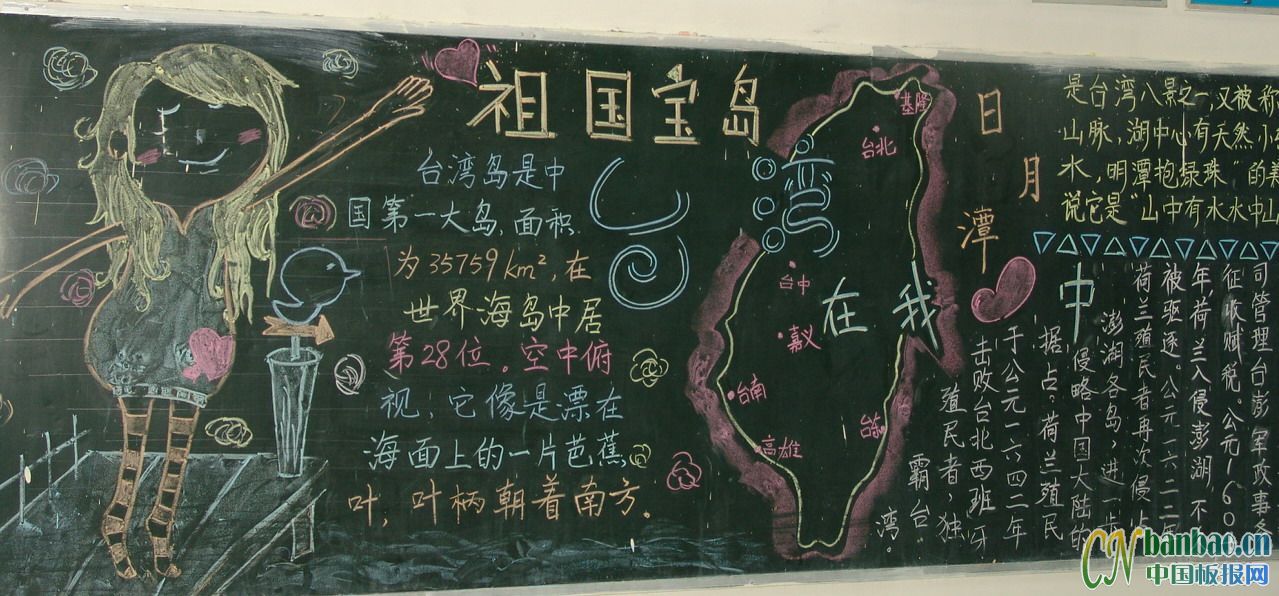 祖国宝岛
台湾岛是中
国第一大岛,面积
为35759km²,在
世界海岛中居
第28位。空中俯
视,它像是漂在
海面上的一片芭蕉
叶,叶柄朝着南方。
湾
在我
中
基隆
台北
台中
嘉义
台南
高雄
日月潭
是台湾八景之一,又被称
山脉,湖中心有天然小
水,明潭抱绿珠”的美
说它是“山中有水水中山
司管理台澎军政事务
征收赋税。公元160
年,荷兰入侵澎湖,不
被驱逐。公元一六二二年
荷兰殖民者再次侵占
澎湖各岛,进一步
侵略中国大陆的
据点;荷兰殖民
于公元一六四二年
击败台北西班牙
殖民者,独
霸台
湾。
CN banbao.cn
中国板报网